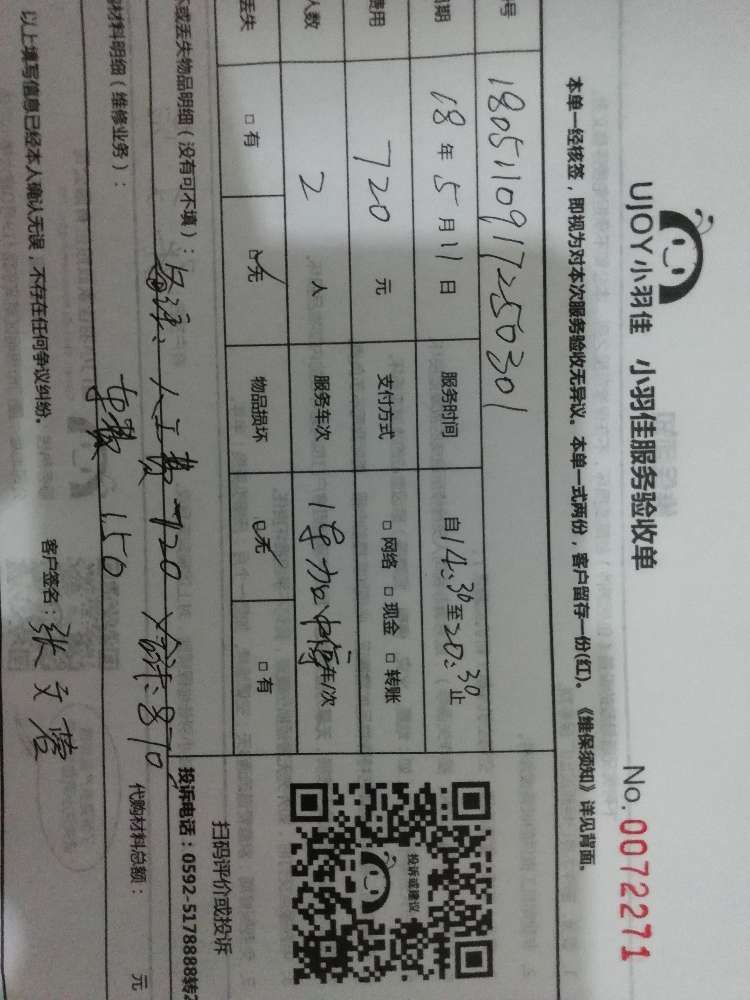 UJOY小羽佳 小羽佳服务验收单 No. 0072271
本单一经核签，即视为对本次服务验收无异议。本单一式两份，客户留存一份(红)。《维保须知》详见背面。
号 1805110917250301
期 18年5月11日 服务时间 自14:30至20:30止
费用 720 元 支付方式 □网络 □现金 □转账
人数 2 人 服务车次 车/次
丢失 □有 □无 物品损坏 □无 □有
或丢失物品明细（没有可不填）： 人工费 720 合计:870
材料明细（维修业务）： 车费 150 代购材料总额： 元
以上填写信息已经本人确认无误，不存在任何争议纠纷。 客户签名：张文
投诉或建议
扫码评价或投诉
投诉电话：0592-5178888转2